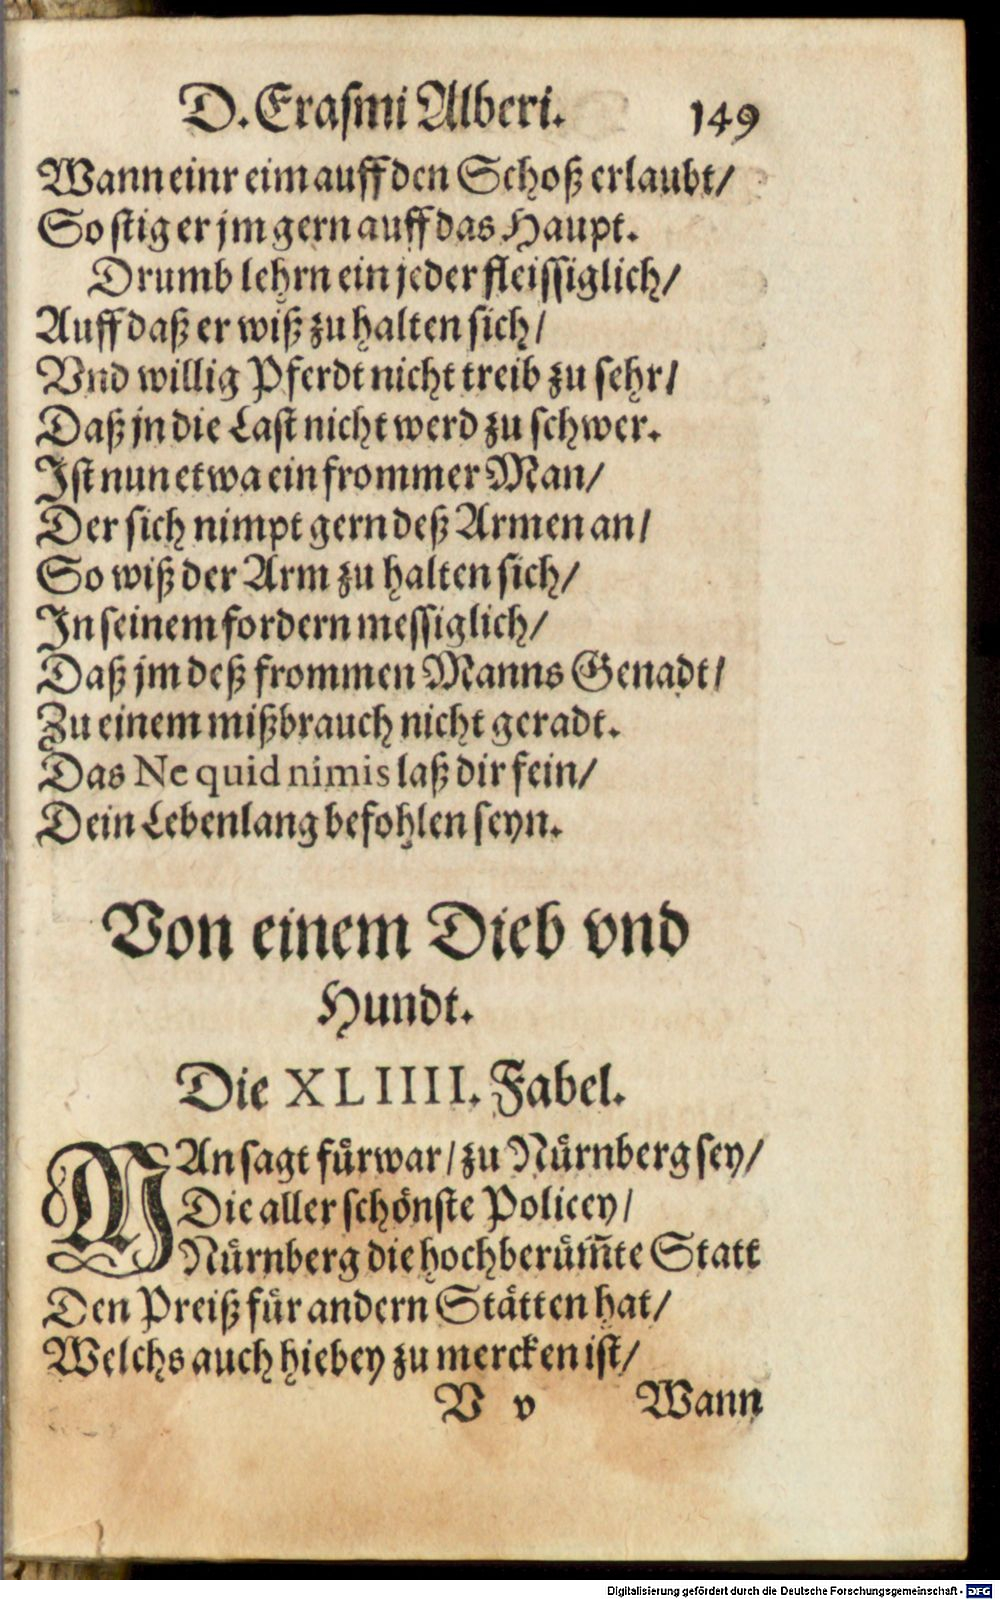 D. Erasmi Alberi. 149
Wann einr eim auff den Schoß erlaubt/
So stig er jm gern auff das Haupt.
Drumb lehrn ein jeder fleissiglich/
Auff daß er wiß zu halten sich/
Vnd willig Pferdt nicht treib zu sehr/
Daß jn die Last nicht werd zu schwer.
Ist nun etwa ein frommer Man/
Der sich nimpt gern deß Armen an/
So wiß der Arm zu halten sich/
In seinem fordern messiglich/
Daß jm deß frommen Manns Genadt/
Zu einem mißbrauch nicht geradt.
Das Ne quid nimis laß dir fein/
Dein Lebenlang befohlen seyn.
Von einem Dieb vnd
Hundt.
Die XLIIII. Fabel.
MAn sagt fürwar/ zu Nürnberg sey/
Die aller schönste Policey/
Nürnberg die hochberüm̃te Statt
Den Preiß für andern Stätten hat/
Welchs auch hiebey zu mercken ist/
V v Wann
Digitalisierung gefördert durch die Deutsche Forschungsgemeinschaft - DFG